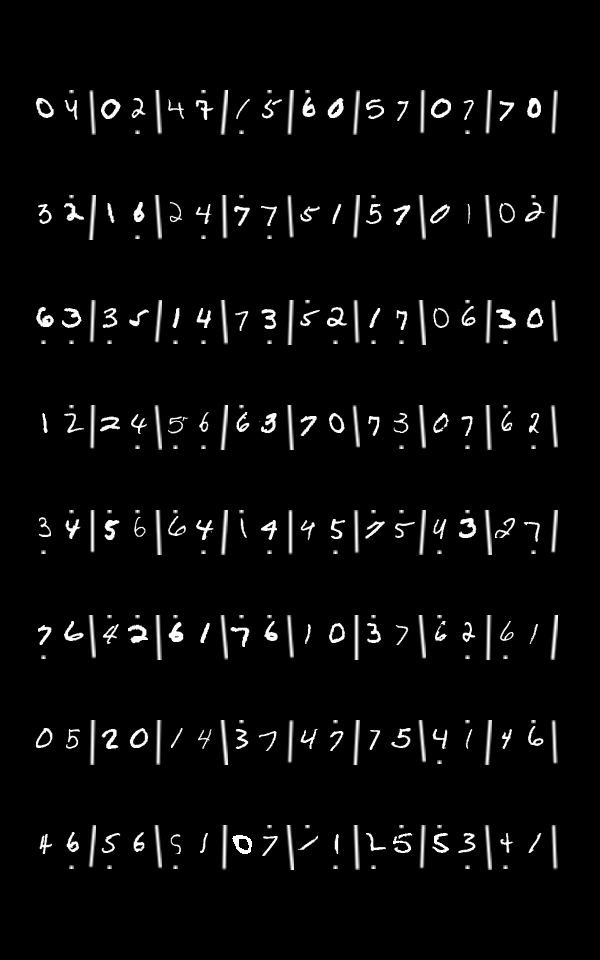 0 4 | 0 2 | 4 7 | 1 5 | 6 0 | 5 7 | 0 7 | 7 0 |
3 2 | 1 6 | 2 4 | 7 7 | 5 1 | 5 7 | 0 1 | 0 2 |
6 3 | 3 5 | 1 4 | 7 3 | 5 2 | 1 7 | 0 6 | 3 0 |
1 2 | 2 4 | 5 6 | 6 3 | 7 0 | 7 3 | 0 7 | 6 2 |
3 4 | 5 6 | 6 4 | 1 4 | 4 5 | 7 5 | 4 3 | 2 7 |
7 6 | 4 2 | 6 1 | 7 6 | 1 0 | 3 7 | 6 2 | 6 1 |
0 5 | 2 0 | 1 4 | 3 7 | 4 7 | 7 5 | 4 1 | 4 6 |
4 6 | 5 6 | 5 1 | 0 7 | 1 1 | 2 5 | 5 3 | 4 1 |